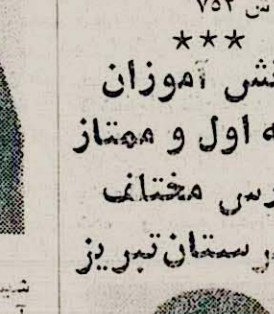 ش ۷۵۲
***
نش آموزان
ه اول و ممتاز
رس مختلف
رستان تبریز
شی